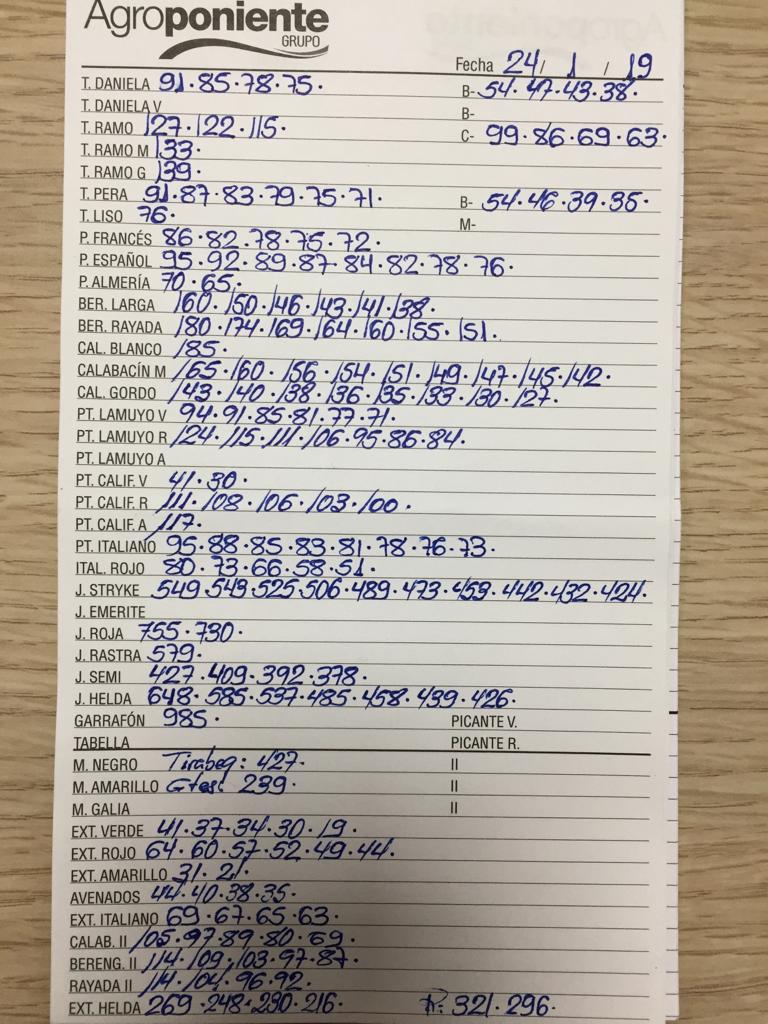 Agroponiente
GRUPO
Fecha 24/ 1 / 19
T. DANIELA 91.85.78.75. B- 54.47.43.38.
T. DANIELA V B-
T. RAMO 127.122.115. C- 99.86.69.63.
T. RAMO M 133.
T. RAMO G 139.
T. PERA 91.87.83.79.75.71. B- 54.46.39.35.
T. LISO 76. M-
P. FRANCÉS 86.82.78.75.72.
P. ESPAÑOL 95.92.89.87.84.82.78.76.
P. ALMERÍA 70.65.
BER. LARGA 160.150.146.143.141.138.
BER. RAYADA 180.174.169.164.160.155.151.
CAL. BLANCO 185.
CALABACÍN M 165.160.156.154.151.149.147.145.142.
CAL. GORDO 143.140.138.136.135.133.130.127.
PT. LAMUYO V 94.91.85.81.77.71.
PT. LAMUYO R 124.115.111.106.95.86.84.
PT. LAMUYO A
PT. CALIF. V 41.30.
PT. CALIF. R 111.108.106.103.100.
PT. CALIF. A 117.
PT. ITALIANO 95.88.85.83.81.78.76.73.
ITAL. ROJO 80.73.66.58.51.
J. STRYKE 549.543.525.506.489.473.453.442.432.424.
J. EMERITE
J. ROJA 755.730.
J. RASTRA 579.
J. SEMI 427.409.392.378.
J. HELDA 648.585.537.485.458.439.426.
GARRAFÓN 985. PICANTE V.
TABELLA PICANTE R.
M. NEGRO Tirabeq: 427. II
M. AMARILLO Gtes: 239. II
M. GALIA II
EXT. VERDE 41.37.34.30.19.
EXT. ROJO 64.60.57.52.49.44.
EXT. AMARILLO 31.21.
AVENADOS 44.40.38.35.
EXT. ITALIANO 69.67.65.63.
CALAB. II 105.97.89.80.69.
BERENG. II 114.109.103.97.87.
RAYADA II 114.104.96.92.
EXT. HELDA 269.248.230.216. R: 321.296.